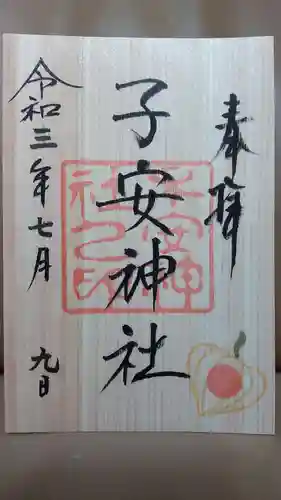 奉拝
子安神社
子安神社之印
令和三年七月九日